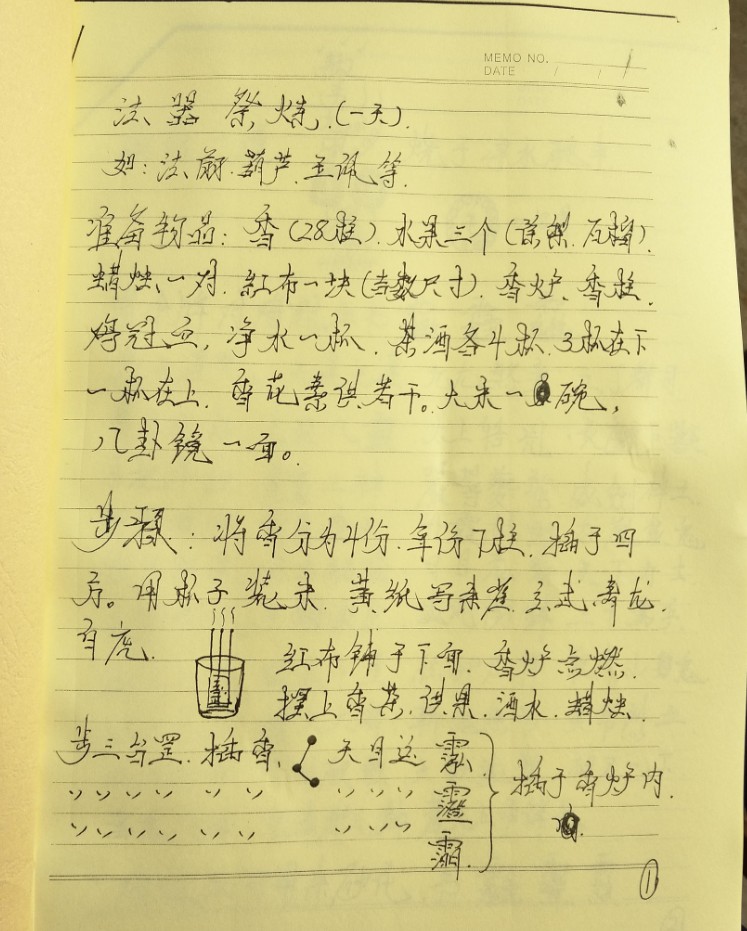 MEMO NO.
DATE / / 1
法器祭炼.(一天).
如:法扇.葫芦.玉佩等.
准备物品:香(28柱).水果三个(苹、梨.石榴).
蜡烛、一对.红布一块(奇数尺寸).香炉、香柱.
鸡冠血,净水一杯.茶酒各4杯.3杯在下
一杯在上.香花素供若干。大米一碗,
八卦镜一面。
步骤:将香分为4份.每份7柱.插于四
方。用杯子装米.黄纸写朱雀.玄武.青龙.
白虎. 红布铺于下面.香炉点燃.
摆上香茶.供果.酒水.蜡烛.
步三台罡.插香. 天目运 插于香炉内.
〃〃〃〃 〃〃 〃〃〃
〃〃〃〃 〃〃 〃〃〃
1